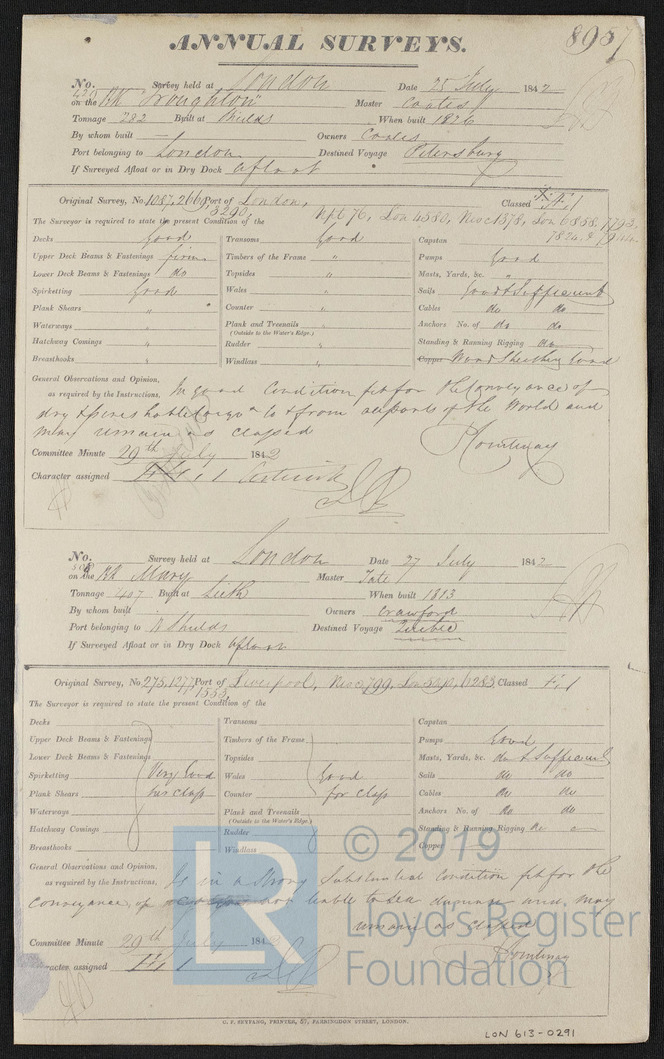 ANNUAL SURVEYS.
8957
No. 420 Survey held at London Date 25 July 1842
on the Bk Troughton Master Coates
Tonnage 282 Built at Shields When built 1826
By whom built — Owners Coates
Port belonging to London Destined Voyage Petersburg
If Surveyed Afloat or in Dry Dock afloat
Original Survey, No. 1087, 266, Port of London, Classed
3290, Npt 76, Lon 4580, 1378, Lon 6858,
The Surveyor is required to state the present Condition of the
Decks Good Transoms Good Capstan
Upper Deck Beams & Fastenings firm Timbers of the Frame " Pumps Good
Lower Deck Beams & Fastenings do Topsides " Masts, Yards, &c. "
Spirketting Good Wales " Sails Good & Sufficient
Plank Shears " Counter " Cables do do
Waterways " Plank and Treenails " Anchors No. of do do
(Outside to the Water's Edge.)
Hatchway Comings " Rudder " Standing & Running Rigging do
Breasthooks " Windlass " Copper Wood Sheathing Good
General Observations and Opinion,
as required by the Instructions, In good Condition fit for the Conveyance of
dry & perishable Cargo to & from all parts of the World and
may remain as classed
Committee Minute 29th July 1842
Character assigned
No. 508 Survey held at London Date 27 July 1842
on the Bk Mary Master Tate
Tonnage 407 Built at Leith When built 1813
By whom built Owners Crawford
Port belonging to N Shields Destined Voyage Quebec
If Surveyed Afloat or in Dry Dock afloat
Original Survey, No. 275, 1277, Port of Liverpool, 799, 6283 Classed
1553,
The Surveyor is required to state the present Condition of the
Decks Transoms Capstan
Upper Deck Beams & Fastenings Timbers of the Frame Pumps Good
Lower Deck Beams & Fastenings Topsides Masts, Yards, &c. do & Sufficient
Spirketting Very Good Wales Good Sails do do
Plank Shears her class Counter for class Cables do do
Waterways Plank and Treenails Anchors No. of do do
(Outside to the Water's Edge.)
Hatchway Comings Rudder Standing & Running Rigging do
Breasthooks Windlass Copper
General Observations and Opinion,
as required by the Instructions, Is in a Strong Substantial Condition fit for the
Conveyance of a Cargo not liable to Sea damage and may
remain as classed
Committee Minute 29th July 1842
Character assigned
C. F. SEYFANG, PRINTER, 57, FARRINGDON STREET, LONDON.
LON 613-0291
LR
© 2019
Lloyd's Register
Foundation